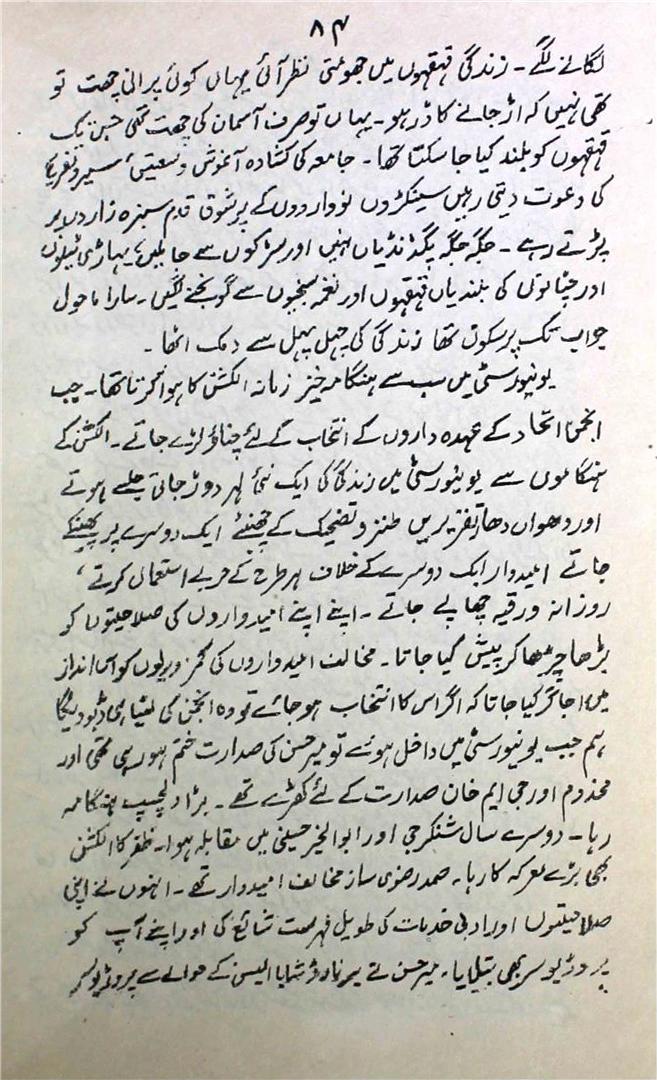 ۸۴
لگانے لگے ۔ زندگی قہقہوں میں جھومتی نظر آئی یہاں کوئی پرانی چھت تو
تھی نہیں کہ اڑ جانے کا ڈر ہو ۔ یہاں تو صرف آسمان کی چھت تھی جس تک
قہقہوں کو بلند کیا جا سکتا تھا ۔ جامعہ کی کشادہ آغوش وسعتیں سیر و تفریح
کی دعوت دیتی رہیں سینکڑوں نوواردوں کے پرشوق قدم سبزہ زاروں پر
پڑتے رہے ۔ جگہ جگہ پگڈنڈیاں بنیں اور سڑکوں سے جا ملیں، پہاڑی ٹیلوں
اور چٹانوں کی بلندیاں قہقہوں اور نغمہ سنجیوں سے گونجنے لگیں ۔ سارا ماحول
جواب تک پرسکون تھا زندگی کی چہل پہل سے دمک اٹھا ۔
یونیورسٹی میں سب سے ہنگامہ خیز زمانہ الکشن کا ہوا کرتا تھا ۔ جب
انجمن اتحاد کے عہدہ داروں کے انتخاب کے لئے چناؤ لڑے جاتے ۔ الکشن کے
ہنگاموں سے یونیورسٹی میں زندگی کی ایک نئی لہر دوڑ جاتی جلسے ہوتے
اور دھواں دھار تقریریں طنز و تضحیک کے چھینٹے ایک دوسرے پر پھینکے
جاتے امیدوار ایک دوسرے کے خلاف ہر طرح کے حربے استعمال کرتے ،
روزانہ ورقیہ چھاپے جاتے ۔ اپنے اپنے امیدواروں کی صلاحیتوں کو
بڑھا چڑھا کر پیش کیا جاتا ۔ مخالف امیدواروں کی کمزوریوں کو اس انداز
میں اجاگر کیا جاتا کہ اگر اس کا انتخاب ہو جائے تو وہ انجمن کی لٹیا ہی ڈبو دیگا
ہم جب یونیورسٹی میں داخل ہوئے تو میر حسن کی صدارت ختم ہو رہی تھی اور
مخدوم اور جی ایم خان صدارت کے لئے کھڑے تھے ۔ بڑا دلچسپ ہنگامہ
رہا ۔ دوسرے سال شنکر جی اور ابوالخیر حسینی میں مقابلہ ہوا ۔ ظفر کا الکشن
بھی بڑے معرکہ کا رہا ۔ صمد رضوی ساز مخالف امیدوار تھے ۔ انہوں نے اپنی
صلاحیتوں اور ادبی خدمات کی طویل فہرست شائع کی اور اپنے آپ کو
پروڈیوسر بھی بتلایا ۔ میر حسن نے برناڈ شا یا کے حوالے سے پروڈیوسر